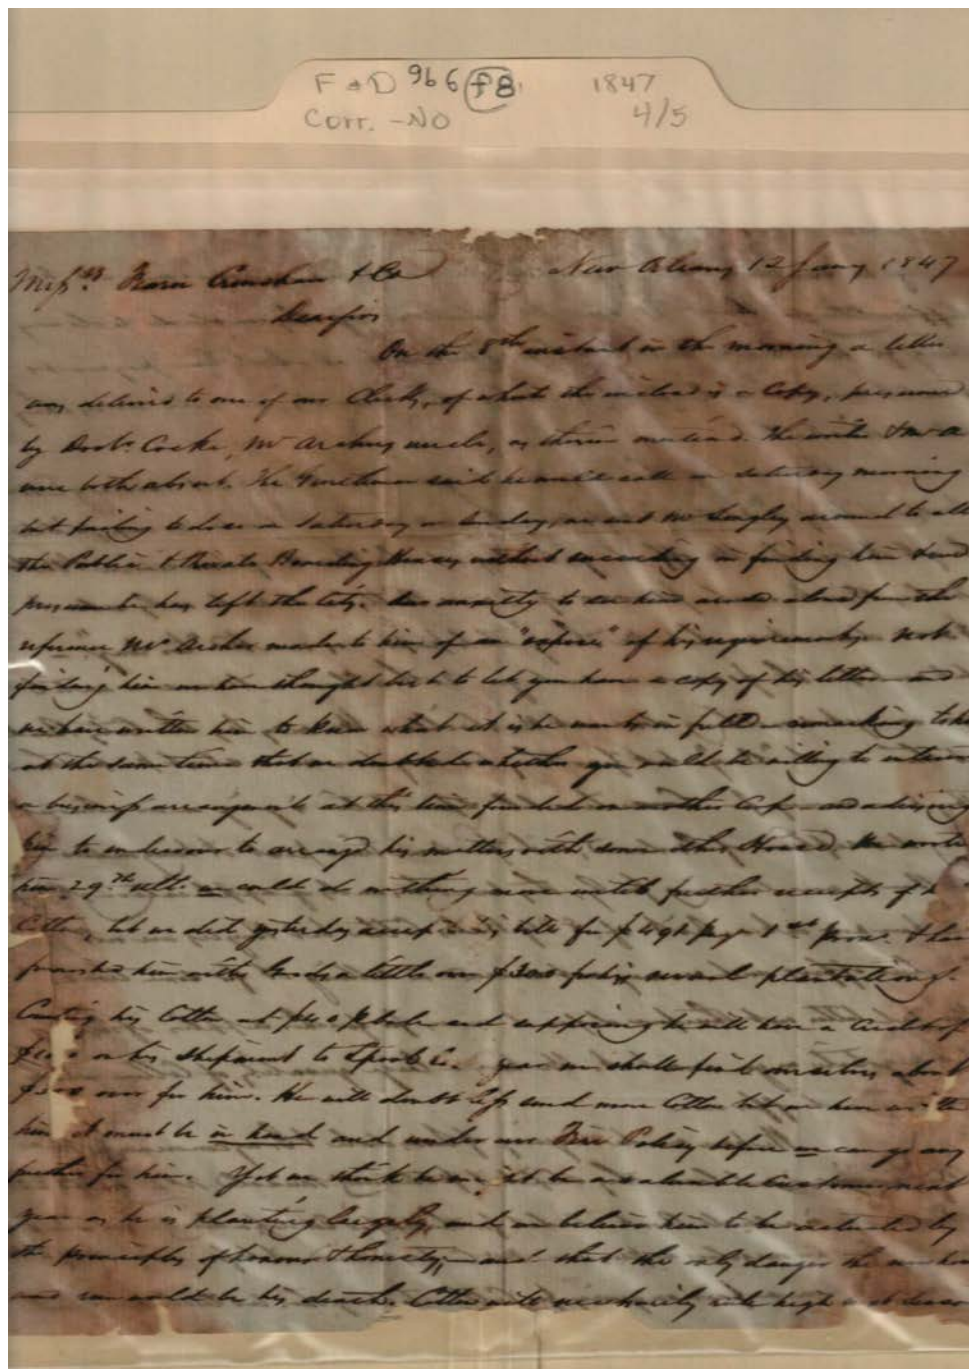 F & D 966 f8 1847
Corr. - NO 4/5
Mess.rs & Co New Orleans 12 Jany 1847
Dear Sirs
On the 8th instant in the morning a letter
was delivered to one of our Clerks, of which the inclosed is a Copy, presumed
by Doctr. Cocke, Mr Archers uncle, as therein mentioned. The writer & Mr A
were both absent. The Gentleman said he would call on Saturday morning
but failing to do so on Saturday or Sunday, we sent Mr Langley around to all
the Public & Private Boarding Houses without succeeding in finding him & and
presume he has left the city. Our anxiety to see him arose alone from the
reference Mr Archer made to him of an "exposé" of his requirements. Not
finding him we have thought best to let you have a copy of his letter and
we have written him to know what it is he wants in full remarking to him
at the same time that we doubted whether you would be willing to enter
a business arrangements at this time founded on another Crop and advising
him to endeavour to arrange his matters with some other House. We wrote
him 29th ult. we could do nothing more until further receipts of
Cotton, but we did yesterday accept his bill for $491 & have
furnished him with Goods a little over $300 for his several plantations.
Counting his Cotton at $40 p bale and supposing he will have a Credit of
on his shipment to Lpool we shall find ourselves about
over for him. He will doubtless send more Cotton but we have
him it must be in hand and under our Fire Policy before we can go any
further for him. Yet we think he be a valuable Customer next
year as he is planting largely, and we believe him to be actuated by
the principles of honour & honesty, and that the only danger
would be his death. Cotton will necessarily rule high next season